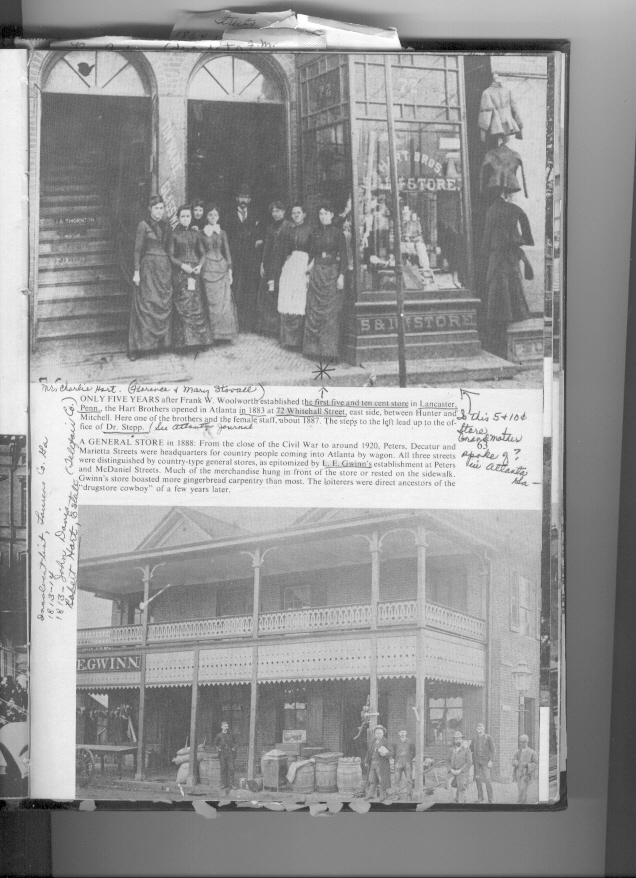 J.A. THORNTON
72
HART BROS.
5 & 10¢ STORE.
5 & 10¢ STORE
Mrs Charlie Hart. (Florence & Mary Stovall)
ONLY FIVE YEARS after Frank W. Woolworth established the first five and ten cent store in Lancaster,
Penn., the Hart Brothers opened in Atlanta in 1883 at 72 Whitehall Street, east side, between Hunter and
Mitchell. Here one of the brothers and the female staff, about 1887. The steps to the left lead up to the of-
fice of Dr. Stepp. (See Atlanta Journal
A GENERAL STORE in 1888: From the close of the Civil War to around 1920, Peters, Decatur and
Marietta Streets were headquarters for country people coming into Atlanta by wagon. All three streets
were distinguished by country-type general stores, as epitomized by L. E. Gwinn's establishment at Peters
and McDaniel Streets. Much of the merchandise hung in front of the store or rested on the sidewalk.
Gwinn's store boasted more gingerbread carpentry than most. The loiterers were direct ancestors of the
"drugstore cowboy" of a few years later.
Is this 5 + 10¢
store
Grandmother
63
spoke of?
in Atlanta
Ga —
Hart, Laurens Co. Ga
1813-14
1813 - John Davis
Robert Hart, Estate
E.GWINN